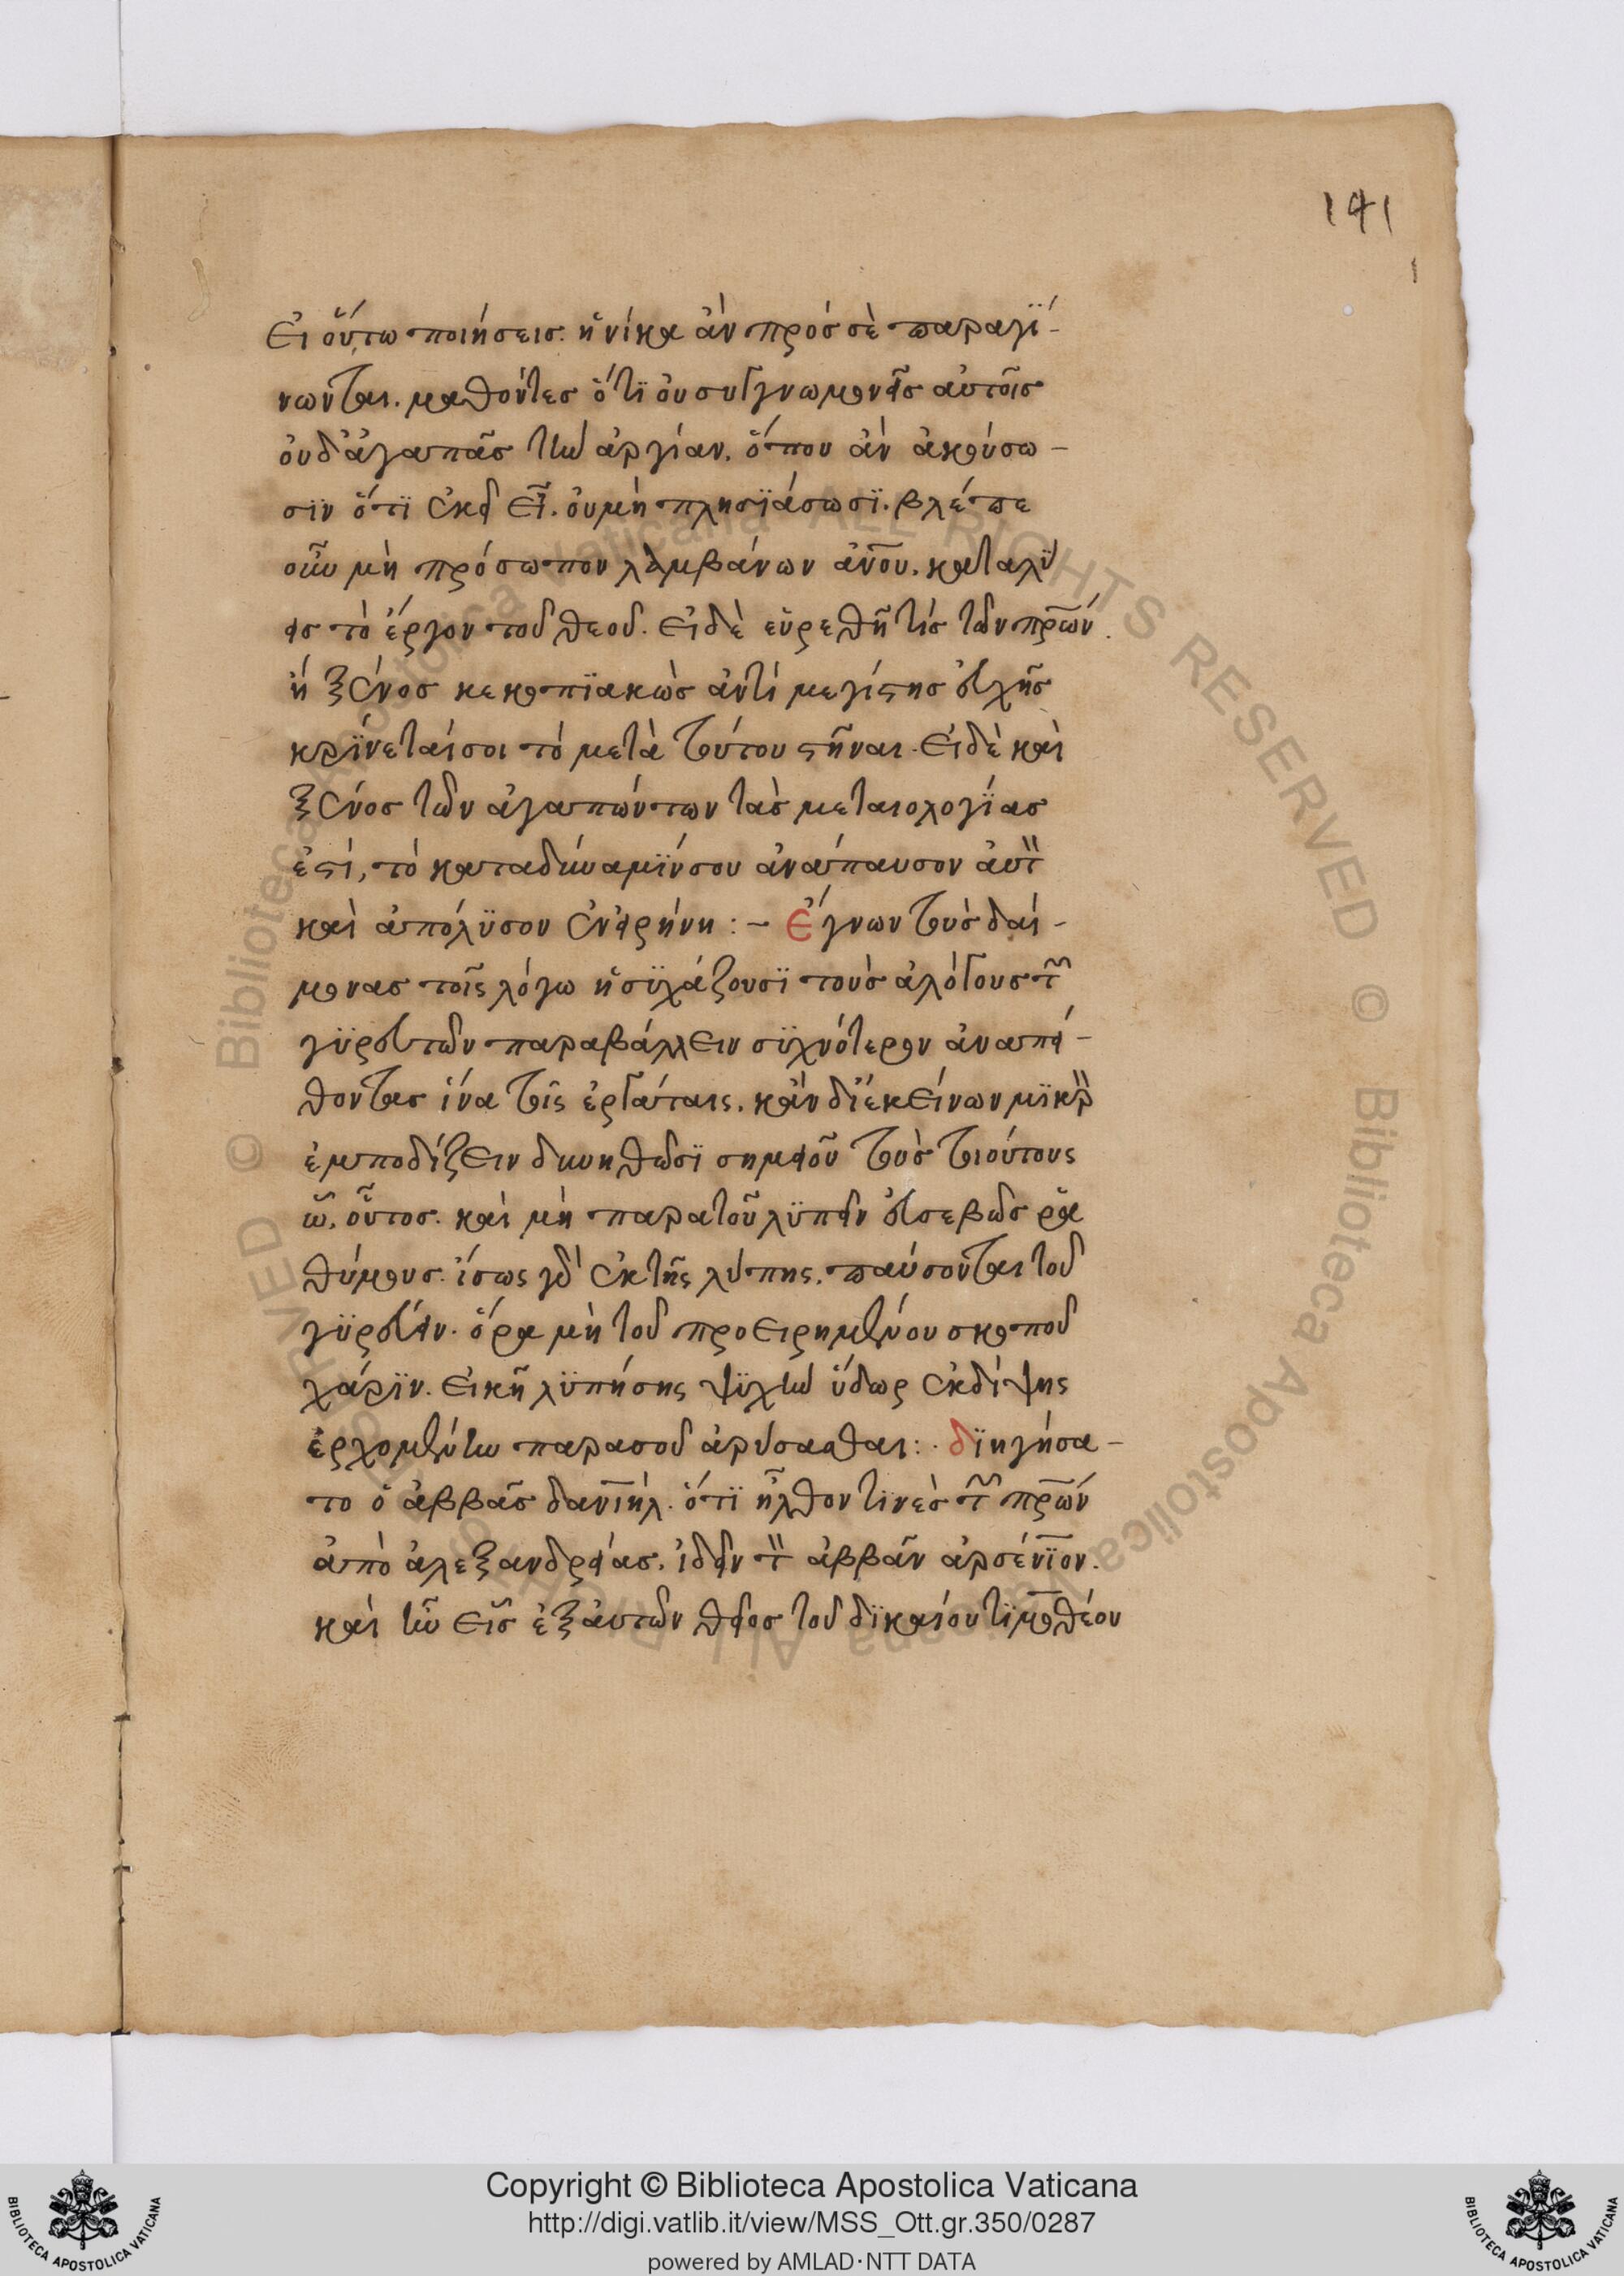 141
Εἰ οὕτω ποιήσεις. ἡνίκα ἂν πρὸς σὲ παραγί-
νωνται. μαθόντες ὅτι οὐ συγγνωμονεῖς αὐτοῖς
οὐδ' ἀγαπᾶς τὴν ἀργίαν. ὅπου ἂν ἀκούσω-
σϊν ὅτϊ ἐκεῖ εἶ. οὐ μὴ πλησϊάσωσϊ. βλέπε
οὖν μὴ πρόσωπον λαμβάνων ἀν͞ου. καταλύ
εις τὸ ἔργον τοῦ θεοῦ. Εἰ δὲ εὑρεθῆ τίς τῶν πρ͞ων.
ἢ ξένος κεκοπϊακὼς ἀντὶ μεγίστης εὐχῆς
κρϊνεταί σοι τὸ μετὰ τούτου στῆναι. Εἰ δὲ καὶ
ξένος τῶν ἀγαπώντων τὰς ματαιολογίας
ἐστί, τὸ κατὰ δύναμϊν σου ἀνάπαυσον αὐτ
καὶ ἀπόλϋσον ἐν εἰρήνη :– Ἔγνων τοὺς δαί-
μονας τοῖς λόγω ἡσϋχάζουσϊ τοὺς ἀλόγους τῶν
γϋρευτῶν παραβάλλειν σϋχνότερον ἀναπεί-
θοντας ἵνα τοῖς ἐργάταις. κἂν δι' ἐκείνων μϊκρὸν
ἐμποδίζειν δυνηθῶσϊ σημειοῦ τοὺς τοιούτους
ὦ, οὗτος. καὶ μὴ παραιτοῦ λϋπεῖν εὐσεβῶς ρα
θύμους. ἴσως γὰρ ἐκ τῆς λύπης. παύσονται τοῦ
γϋρεύειν. ὅρα μὴ τοῦ προειρημένου σκοποῦ
χάρϊν. εἰκῆ λϋπήσης ψϋχὴν ὕδωρ ἐκ δίψης
ἐρχομένην παρὰ σοῦ ἀρύσασθαι :· δϊηγήσα-
το ὁ ἀββᾶς δανϊήλ. ὅτϊ ἦλθον τινὲς τῶν πρ͞ων
ἀπὸ ἀλεξανδρείας. ἰδεῖν τὸν ἀββᾶν ἀρσένϊον.
καὶ ἦν εἷς ἐξ αὐτῶν θεῖος τοῦ δϊκαίου τϊμοθέου
Copyright © Biblioteca Apostolica Vaticana
http://digi.vatlib.it/view/MSS_Ott.gr.350/0287
powered by AMLAD·NTT DATA